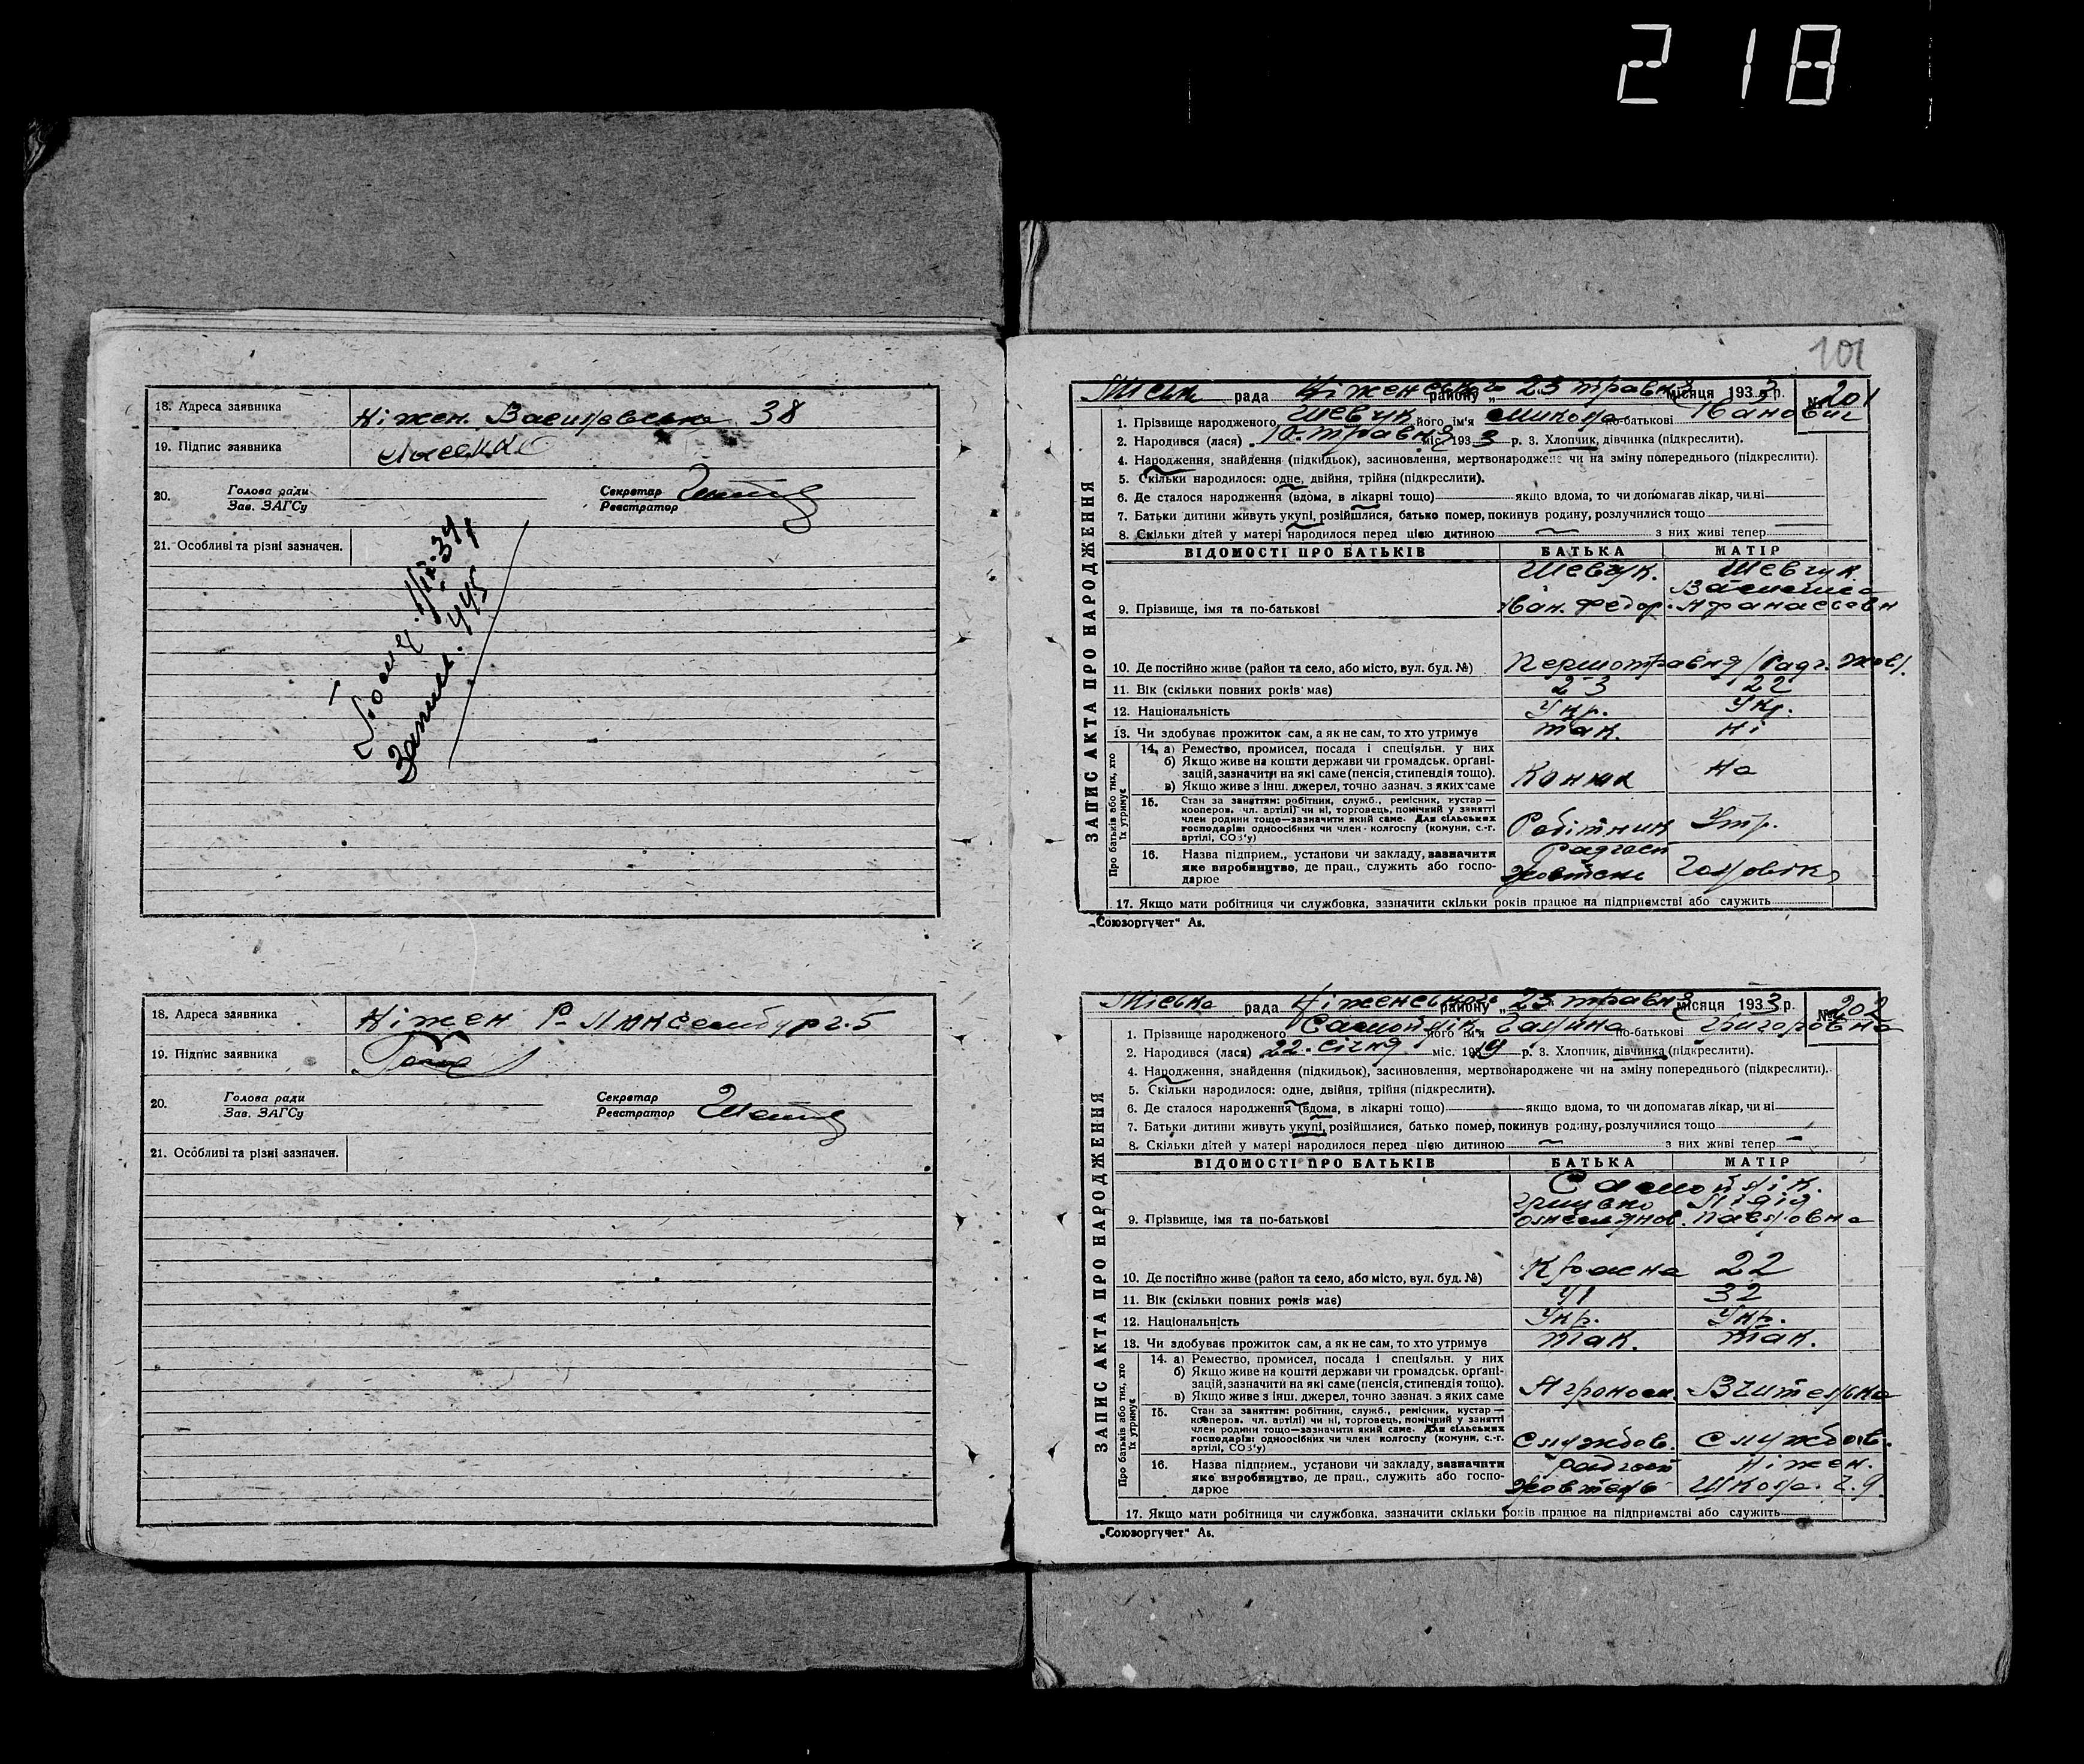 218
18. Адреса заявника Ніжен. Василівська 38
19. Підпис заявника
20. Голова ради Зав. ЗАГСу Секретар Реєстратор
21. Особливі та різні зазначен.
445
18. Адреса заявника Ніжен Р. Люксембург. 5
19. Підпис заявника
20. Голова ради Зав. ЗАГСу Секретар Реєстратор
21. Особливі та різні зазначен.
101
Міська рада Ніженського району „ 23 травня місяця 1933 р. № 201
ЗАПИС АКТА ПРО НАРОДЖЕННЯ
1. Прізвище народженого Шевчук його ім'я Микола по-батькові Іванович
2. Народився (лася) 10. травня міс. 1933 р. 3. Хлопчик, дівчинка (підкреслити).
4. Народження, знайдення (підкидьок), засиновлення, мертвонароджене чи на зміну попереднього (підкреслити).
5. Скільки народилося: одне, двійня, трійня (підкреслити).
6. Де сталося народження (вдома, в лікарні тощо) якщо вдома, то чи допомагав лікар, чи ні
7. Батьки дитини живуть укупі, розійшлися, батько помер, покинув родину, розлучилися тощо
8. Скільки дітей у матері народилося перед цією дитиною — з них живі тепер
ВІДОМОСТІ ПРО БАТЬКІВ БАТЬКА МАТІР
Шевчук. Шевчук.
9. Прізвище, імя та по-батькові Іван. Федор.
10. Де постійно живе (район та село, або місто, вул. буд. №) Першотравня /Радг. Жов/.
11. Вік (скільки повних років має) 23 22
12. Національність Укр. Укр.
13. Чи здобуває прожиток сам, а як не сам, то хто утримує так. ні
Про батьків або тих, хто їх утримує
14. а) Ремество, промисел, посада і спеціяльн. у них
б) Якщо живе на кошти держави чи громадськ. орґані-
зацій, зазначити на які саме (пенсія, стипендія тощо).
в) Якщо живе з інш. джерел, точно зазнач. з яких саме Конюх на
15. Стан за заняттям: робітник, служб., ремісник, кустар —
кооперов. чл. артілі) чи ні, торговець, помічний у занятті
член родини тощо—зазначити який саме. Для сільських
господарів: одноосібних чи член колгоспу (комуни, с.-г.
артілі, СОЗ'у) Робітник Утр.
16. Назва підприєм., установи чи закладу, зазначити Радгосп
яке виробництво, де прац., служить або госпо-
дарює Жовтень Чоловік
17. Якщо мати робітниця чи службовка, зазначити скільки років працює на підприємстві або служить
„Союзоргучет" Ав.
Міська рада Ніженського району „ 23 травня місяця 1933 р. № 202
ЗАПИС АКТА ПРО НАРОДЖЕННЯ
1. Прізвище народженого Самойлік його ім'я Галина по-батькові Григоровна
2. Народився (лася) 22. січня міс. 19 р. 3. Хлопчик, дівчинка (підкреслити).
4. Народження, знайдення (підкидьок), засиновлення, мертвонароджене чи на зміну попереднього (підкреслити).
5. Скільки народилося: одне, двійня, трійня (підкреслити).
6. Де сталося народження (вдома, в лікарні тощо) якщо вдома, то чи допомагав лікар, чи ні
7. Батьки дитини живуть укупі, розійшлися, батько помер, покинув родину, розлучилися тощо
8. Скільки дітей у матері народилося перед цією дитиною — з них живі тепер —
ВІДОМОСТІ ПРО БАТЬКІВ БАТЬКА МАТІР
Самойлік.
Грицько Лідія
9. Прізвище, імя та по-батькові Павловна
10. Де постійно живе (район та село, або місто, вул. буд. №) Красна 22
11. Вік (скільки повних років має) 41 32
12. Національність Укр. Укр.
13. Чи здобуває прожиток сам, а як не сам, то хто утримує так. так.
Про батьків або тих, хто їх утримує
14. а) Ремество, промисел, посада і спеціяльн. у них
б) Якщо живе на кошти держави чи громадськ. орґані-
зацій, зазначити на які саме (пенсія, стипендія тощо).
в) Якщо живе з інш. джерел, точно зазнач. з яких саме Агроном. Вчителька
15. Стан за заняттям: робітник, служб., ремісник, кустар —
кооперов. чл. артілі) чи ні, торговець, помічний у занятті
член родини тощо—зазначити який саме. Для сільських
господарів: одноосібних чи член колгоспу (комуни, с.-г.
артілі, СОЗ'у) Службов. Службов.
16. Назва підприєм., установи чи закладу, зазначити Радгосп Ніжен.
яке виробництво, де прац., служить або госпо-
дарює Жовтень Школа. ч. 9
17. Якщо мати робітниця чи службовка, зазначити скільки років працює на підприємстві або служить
„Союзоргучет" Ав.